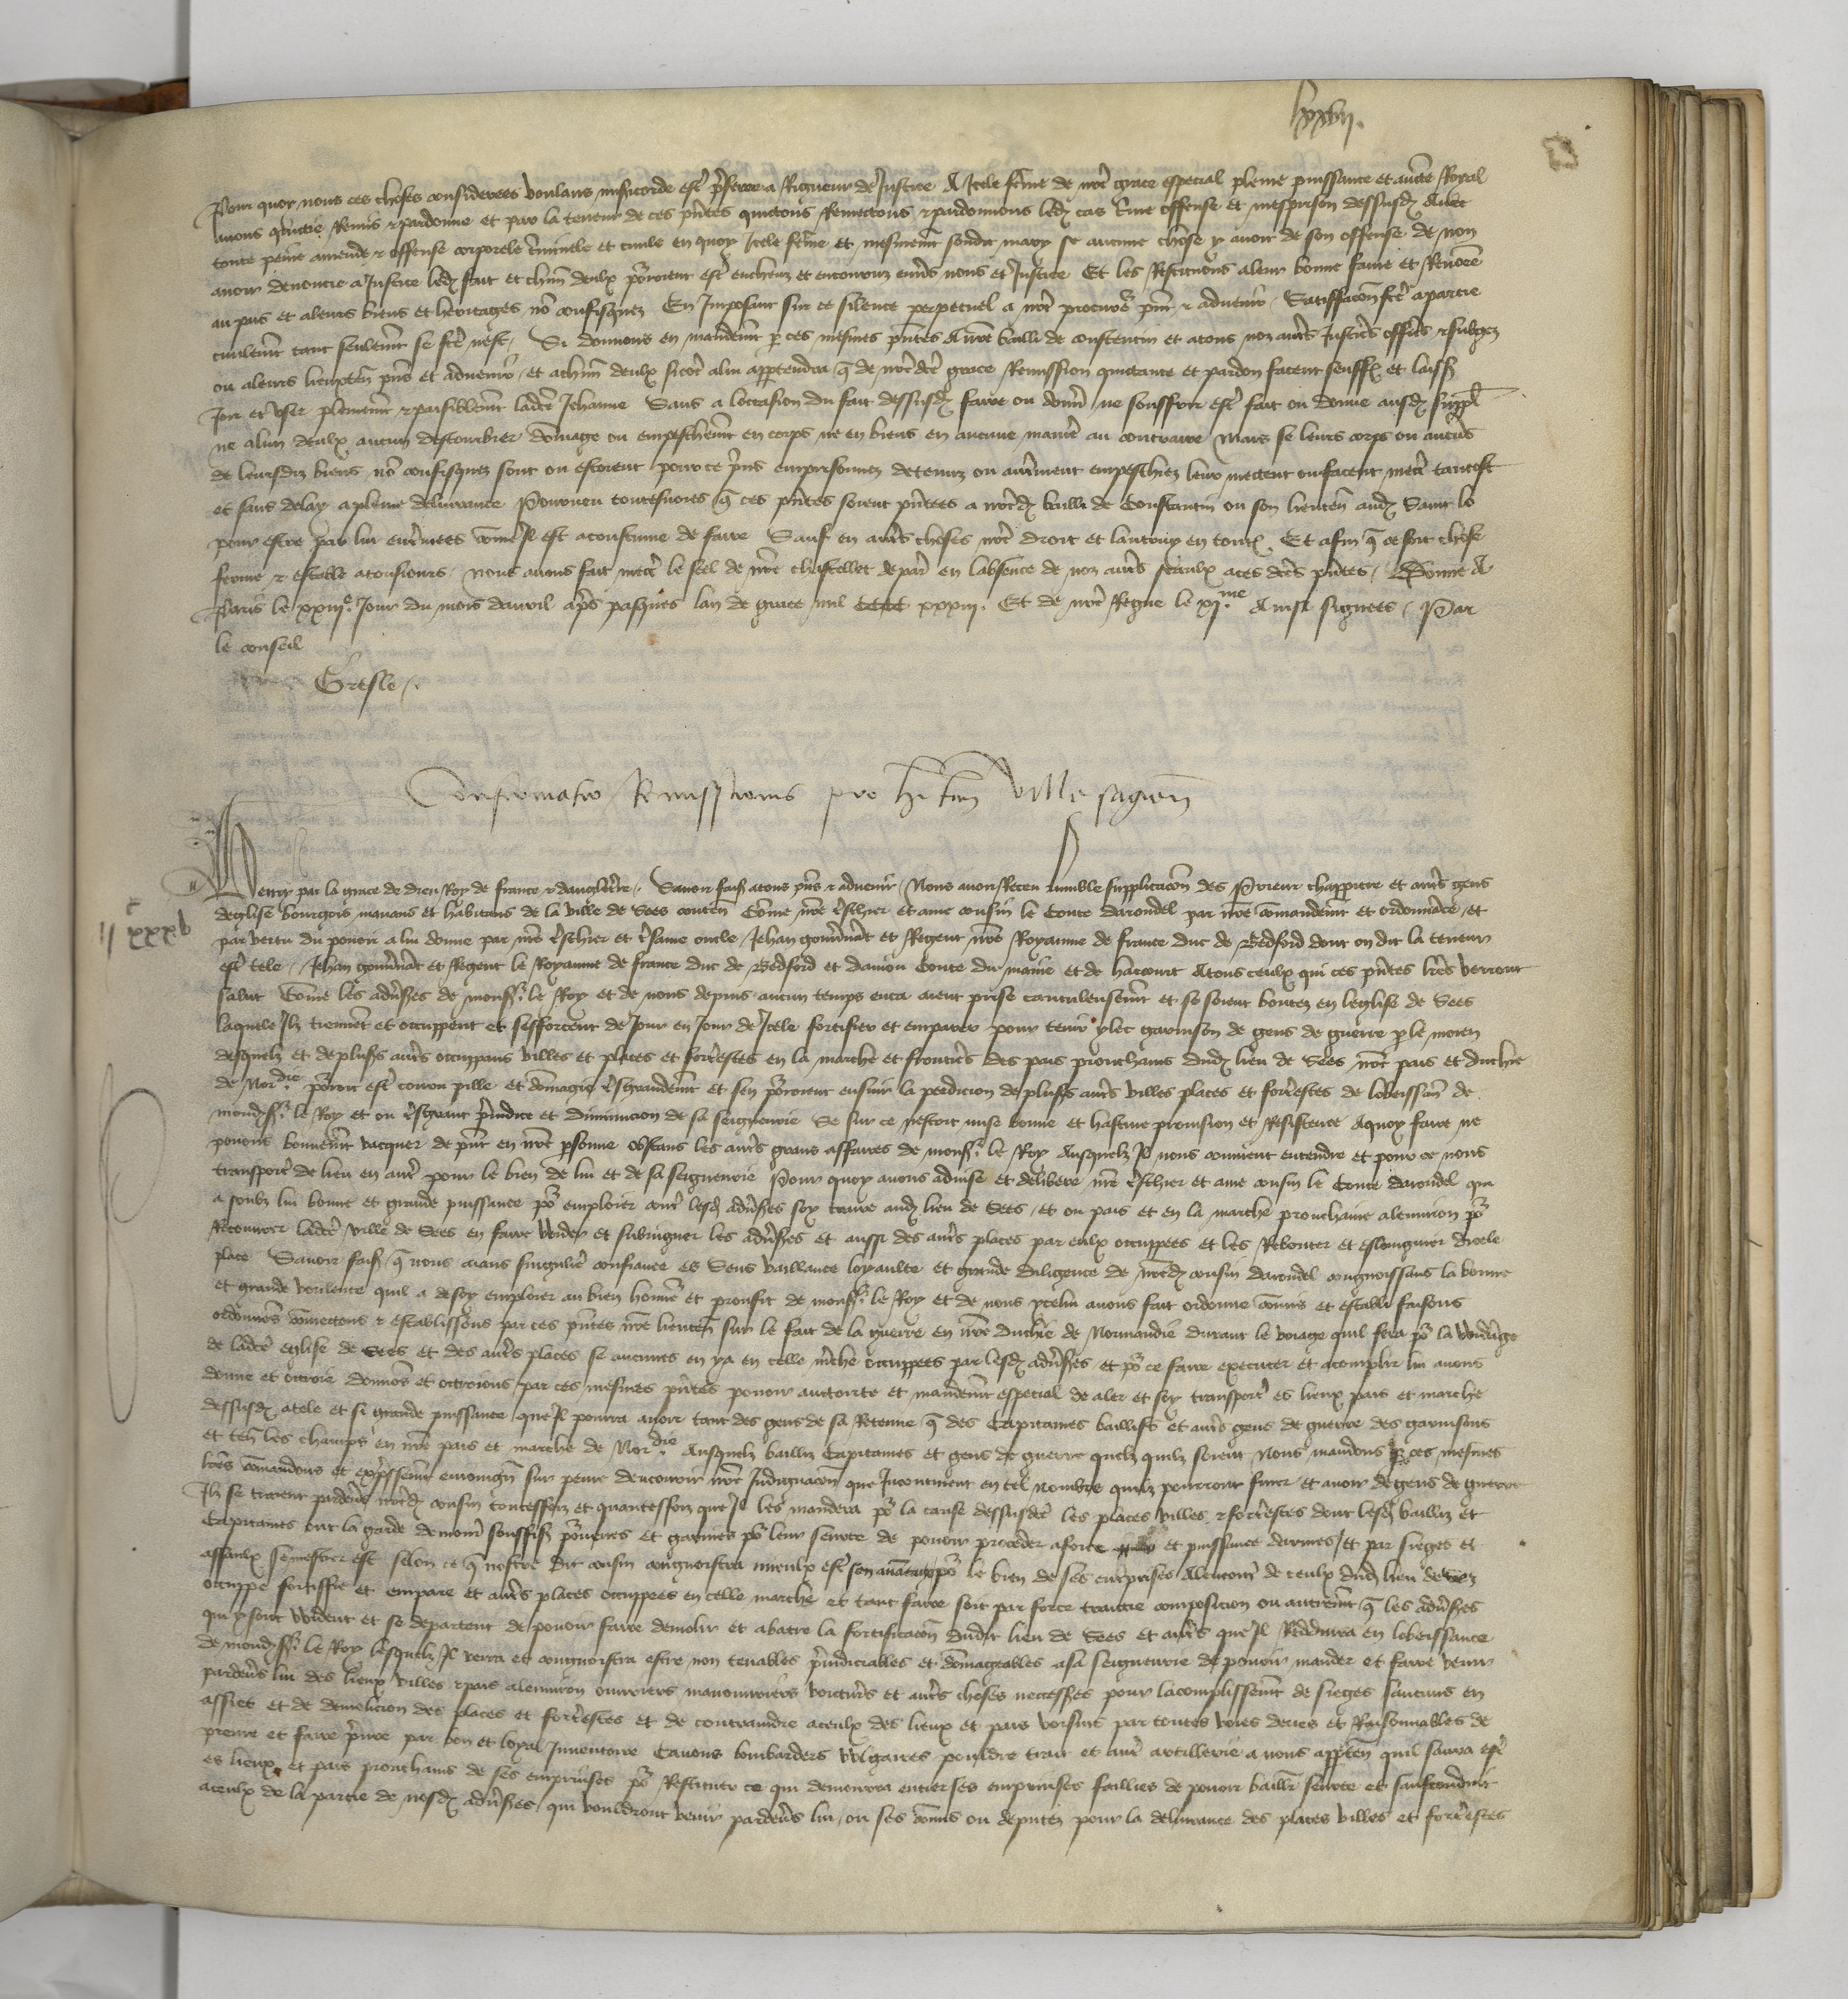 lxxvii.
Pour quoy nous ces choses considerees voulans misericorde estre preferee a Rigueur de Justice A Icele feme de notre grace especial pleine puissance et aucte Royal
avons quictie Remis & pardonne et par la teneur de ces presentes quictons Remectons & pardonnons ledit cas crime offense et mesprison dessusdit Avec
toute peine amende & offense corporele criminele et civile en quoy Icele feme et mesmement sondit mary se aucune chose y avoit de son offense de non
avoir denoncie a Justice ledit fait et chun deulx pourroient estre encheuz et encourouz envers nous et Justice Et les Restituons a leur bonne fame et Renomee
au pais et a leurs biens et heritages non confisquez En Imposant sur ce silence perpetuel a notre procureur present & advenir Satisfacion fcte a partie
civilement tant seulement se fcte nest Si donnons en mandement par ces mesmes presentes A notre bailli de Constentin et a tous noz autres Justiciers officiers & subgez
ou a leurs lieuxtenans presens et advenir et a chun deulx sicome a lui appartendra que de notre dicte grace Remission quictance et pardon facent seuffrent et laissent
Joir et user plenement & paisiblement ladicte Jehanne Sans a loccasion du fait dessusdit faire ou donner ne souffrir estre fait ou donne ausdiz suppl
ne a lun deulx aucun destourbier domage ou empeschement en corps ne en biens en aucune maniere au contraire Mais se leurs corps ou aucuns
de leursdiz biens non confisquez sont ou estoient pour ce prins emprisonnez detenuz ou autrement empeschiez leur mectent ou facent mectre tantost
et sans delay a pleine delivrance Pourveu toutesvoies que ces presentes soient presentees a notredit bailli de Constantin ou son lieutenant audit Saint Lo
pour estre par lui enterinees come Il est acoustume de faire Sauf en autres choses notre droit et lautruy en toutes Et afin que ce soit chose
ferme & estable a tousiours nous avons fait mectre le seel de notre chastellet de paris en labsence de noz autres seaulx a ces dictes presentes Donne A
Paris le xxiiie Jour du mois davril apres pasques lan de grace mil cccc xxxiii. Et de notre Regne le xjme Ainsi signees Par
le conseil
Gresle
Confirmatio Remissionis pro habitantibus ville sagien
Henry par la grace de dieu Roy de france & dangleterre Savoir faisons a tous presens & advenir Nous avons Receu lumble supplicacion des Prieur chappitre et autres gens
deglise bourgois manans et habitans de la ville de Sees contenant Come notre treschier et ame cousin le Conte darondel par notre comandement et ordonnance et
IIc xxxv
par vertu du povoir a lui donne par notre treschier et tresame oncle Jehan gouvernant et Regent notre Royaume de france duc de Bedford dont on dit la teneur
estre tele Jehan gouvernant et Regent le Royaume de france duc de Bedford et daniou Conte du maine et de harcourt A tous ceulx qui ces presentes lettres verront
salut Come les adversaires de monseigneur le Roy et de nous depuis aucun temps enca aient prise cauteleusement et se soient boutez en leglise de Sees
laquele Ilz tiennent et occuppent et sefforcent de Jour en Jour de Icele fortifier et emparer pour tenir ylec garnison de gens de guerre par le moien
desquelz et de plusieurs autres occupans villes et places et forteresses en la marche et frontieres des pais prouchains dudit lieu de Sees notre pais et duchie
de Nordie pourroit estre couru pille et domagie tresgrandement et sen pourroient ensuir la perdicion de plusieurs autres villes places et forteresses de lobeissance de
mondit seigneur le Roy et ou tresgrant preiudice et diminucion de sa seigneurie Se sur ce nestoit mise bonne et hastive provision et Resistence A quoy faire ne
povons bonnement vacquer de present en notre personne obstans les autres grans affaires de monseigneur le Roy Ausquelz Il nous convient entendre et pour ce nous
transporter de lieu en autre pour le bien de lui et de sa seigneurie Pour quoy avons advise et delibere notre treschier et ame cousin le Conte darondel qui
a soubz lui bonne et grande puissance pour emploier contre lesdiz adversaires soy traire audit lieu de Sees et ou pais et en la marche prouchaine alenviron pour
Recouvrer ladicte ville de Sees en faire vuider et subiuguer les adversaires et aussi des autres places par eulx occuppees et les Rebouter et eslongner dicele
place Savoir faisons que nous aians singuliere confiance es Sens vaillance loyaulte et grande diligence de notredit cousin darondel congnoissans la bonne
et grande voulente quil a de soy emploier au bien honneur et prouffit de monseigneur le Roy et de nous ycelui avons fait ordonne comis et establi faisons
ordonnons comectons & establissons par ces presentes notre lieutenant sur le fait de la guerre en notre duchie de Normandie durant le voiage quil fera pour la vuidenge
de ladicte eglise de Sees et des autres places se aucunes en ya en celle marche occuppees par lesdiz adversaires et pour ce faire executer et acomplir lui avons
donne et octroie donnons et octroions par ces mesmes presentes povoir auctorite et mandement especial de aler et soy transporter es lieux pais et marche
dessusdiz a tele et si grande puissance que Il pourra avoir tant des gens de sa Retenue que des Capitaines baillifs et autres gens de guerre des garnisons
et tenans les champs en notre pais et marche de Nordie Ausquelz bailliz Capitaines et gens de guerre quelz quilz soient Nous mandons par ces mesmes
lettres comandons et expressement enioingnons sur peine dencourir notre Indignacion que Incontinent en tel nombre quilz pourront finer et avoir de gens de guerre
Ilz se traient pardevers notredit cousin toutesfoiz et quantesfoiz que Il les mandera pour la cause dessusdicte les places villes & forteresses dont lesdiz bailliz et
Capitaines ont la garde demourans souffisamment pourveues et garnies pour leur seurte de povoir proceder a force et puissance darmes et par sieges et
assaulx se mestier est selon ce que nostre dit cousin congnoistra mieulx estre son avantage pour le bien de ses emprises Alencontre de ceulx dudit lieu de Sees
occuppe fortiffie et empare et autres places occuppees en celle marche et tant faire soit par force traictie composicion ou autrement que les adversaires
qui y sont vuident et se departent de povoir faire demolir et abatre la fortificacion dudit lieu de Sees et autres que Il Reduira en lobeissance
de mondit seigneur le Roy lesquelz Il verra et congnoistra estre non tenables preiudiciables et domageables a sa seigneurie de povoir mander et faire venir
pardevers lui des lieux villes & pais alenviron ouvriers manouvriers voictures et autres choses necessaires pour lacomplissement de sieges saucuns en
assiet et de demolicion des places et forteresses et de contraindre a ceulx des lieux et pais voisins par toutes voies deues et Raisonnables de
prenre et faire prenre par bon et loyal Inventoire Canons bombardes vulgaires pouldre trait et autre artillerie a nous appartenant quil saura estre
es lieux et pais prouchains de ses emprinses pour Restituer ce qui demourra entier ses emprinses faillies de povoir bailler seurte et saufconduit
a ceulx de la partie de nosdiz adversaires qui vouldront venir pardevers lui ou ses comis ou deputez pour la delivrance des places villes et forteresses